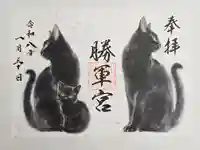 奉拝
勝軍宮
令和八年
八月二十日